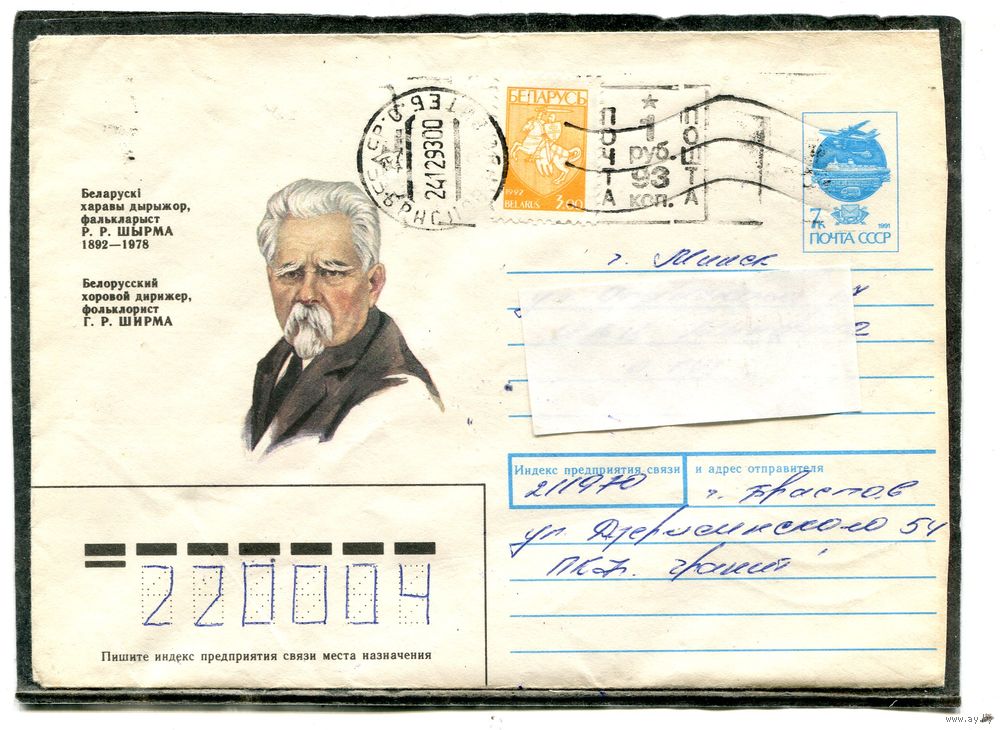 БЕЛАРУСЬ
1992
BELARUS 3.00
24129300
ПОЧТА
★
1
руб.
93
коп.
ПОШТА
7к
1991
ПОЧТА СССР
Беларускі
харавы дырыжор,
фалькларыст
Р. Р. ШЫРМА
1892—1978
Белорусский
хоровой дирижер,
фольклорист
Г. Р. ШИРМА
г. Минск
Индекс предприятия связи и адрес отправителя
211970 г. Браслав
ул Дзержинского 54
220004
Пишите индекс предприятия связи места назначения
www.ay.by